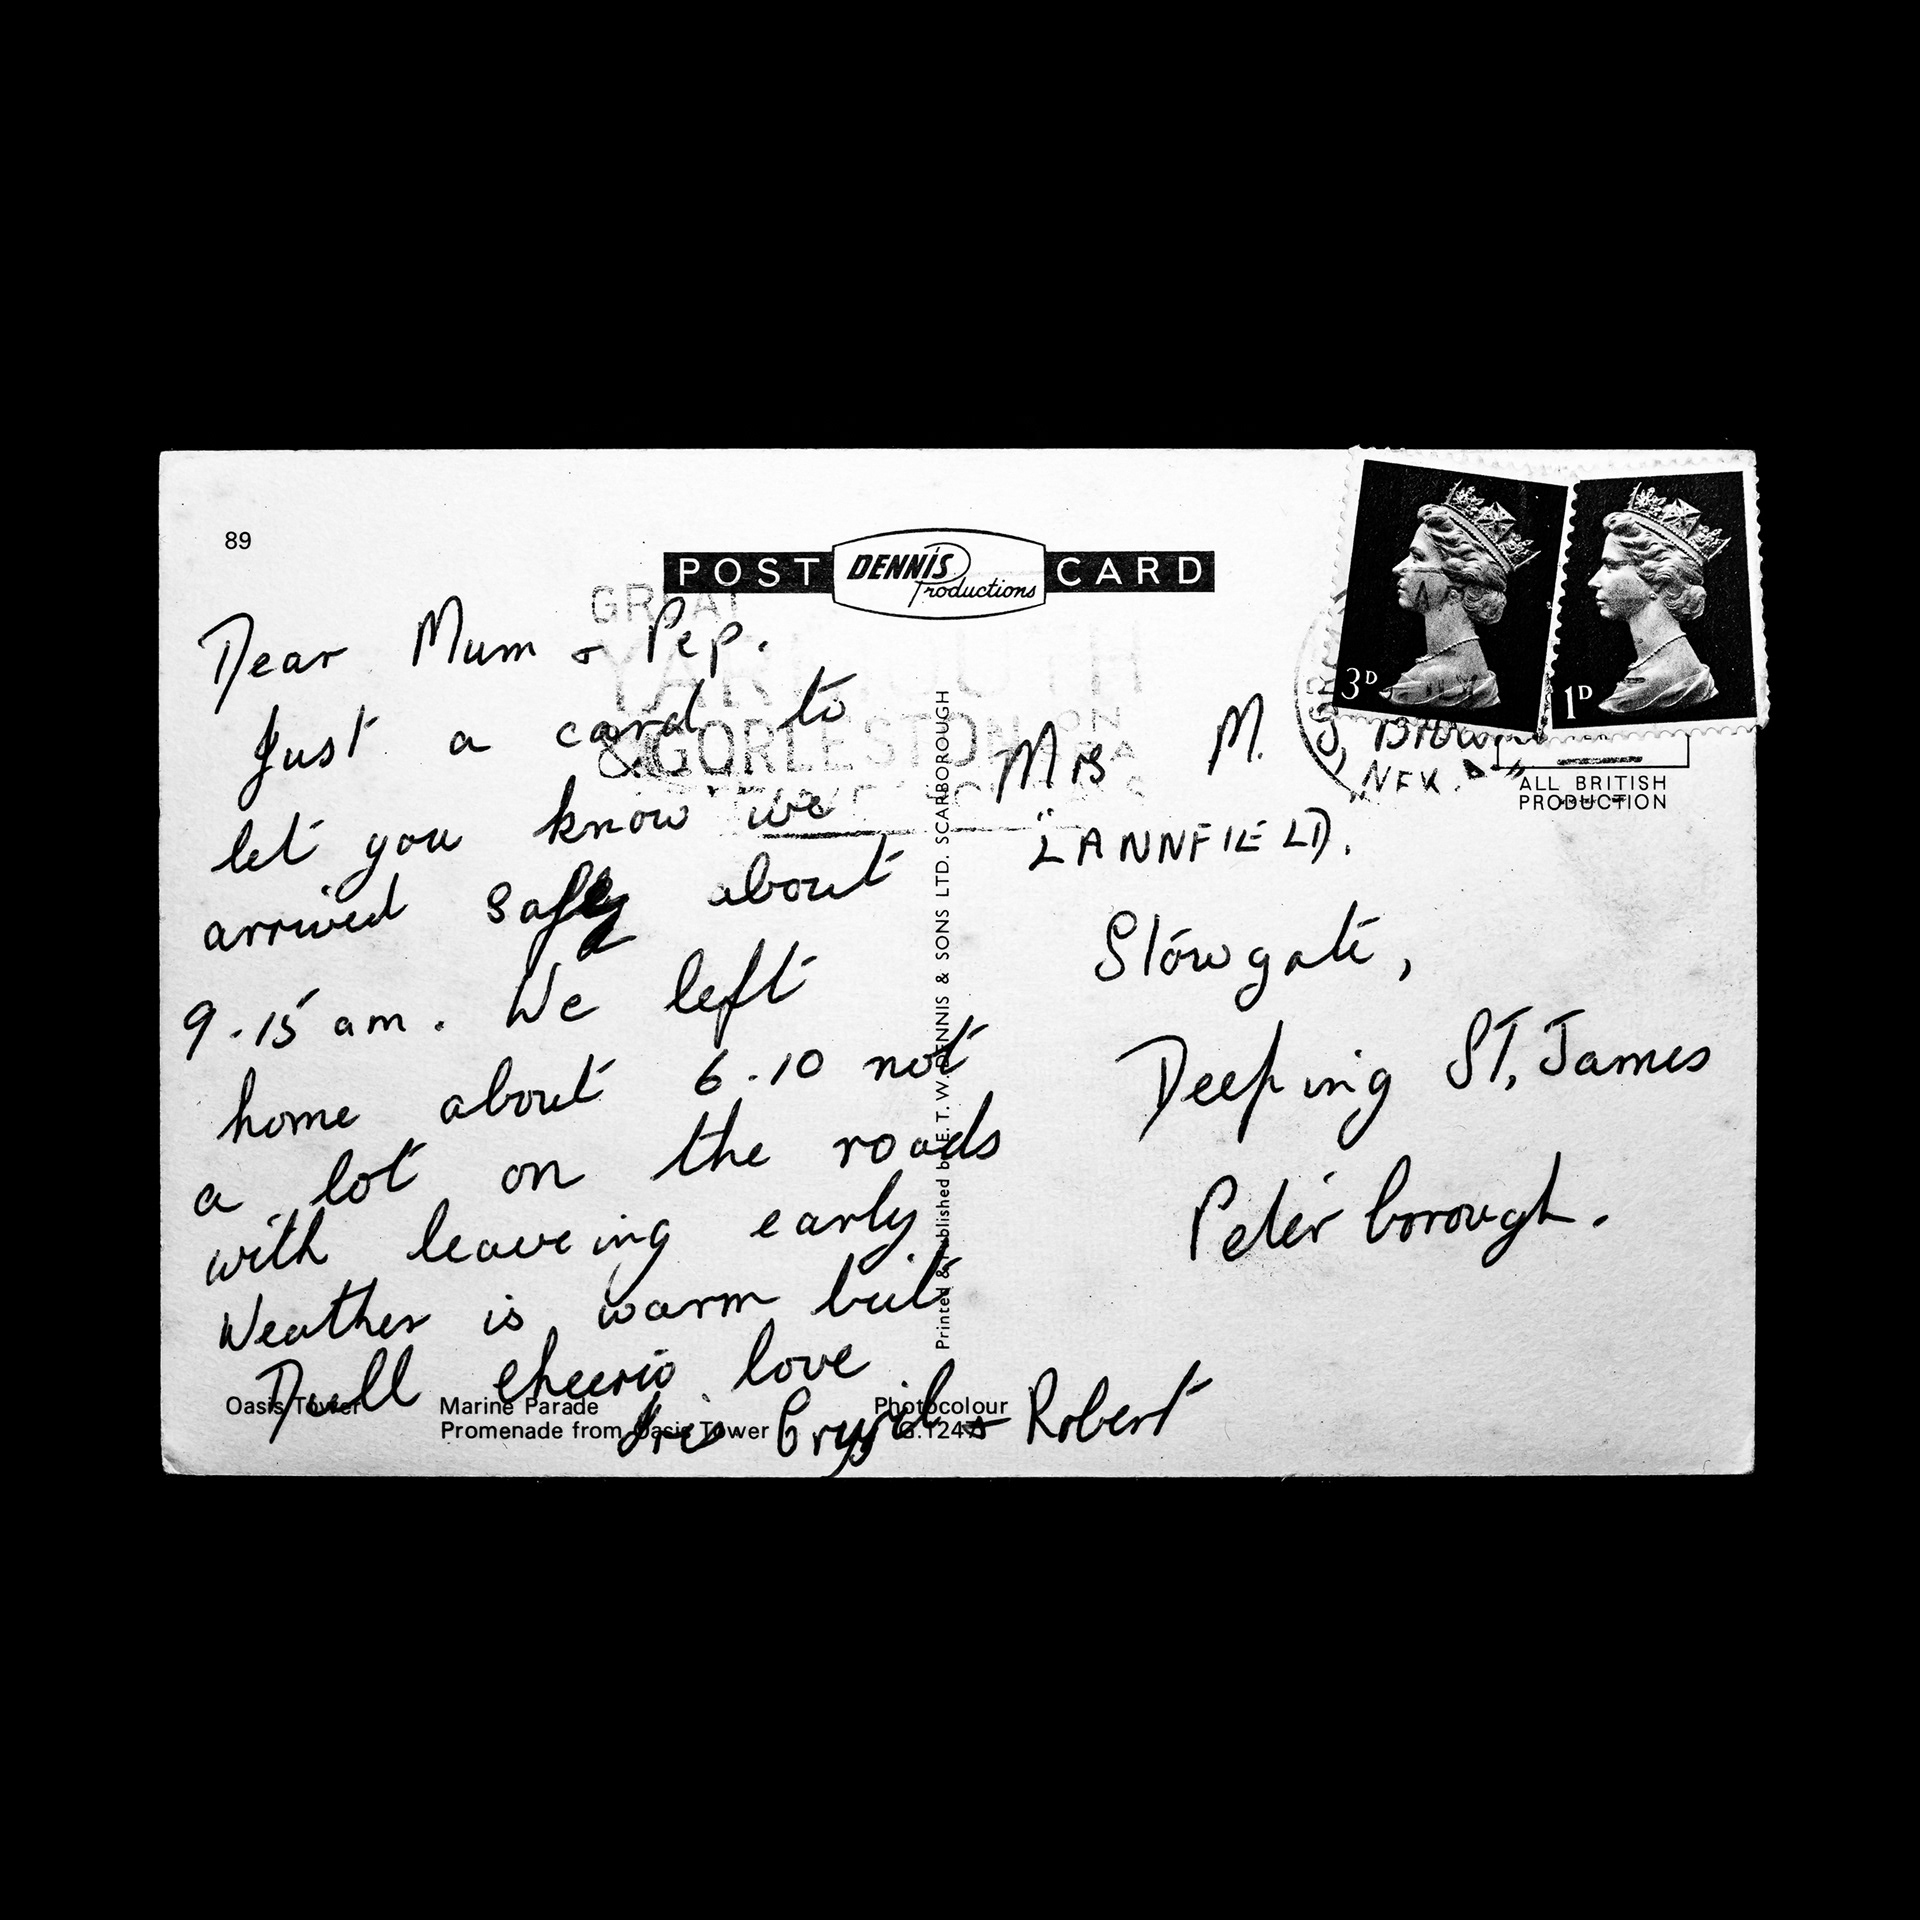 89
POST DENNIS Productions CARD
3D 1D
GREAT
YARMOUTH
& GORLESTON ON
NFK.
ALL BRITISH
PRODUCTION
Dear Mum & Pep.
Just a card to
let you know we
arrived safely about
9.15 am. We left
home about 6.10 not
a lot on the roads
with leaveing early
Weather is warm but
Dull cheerio love
Iris & Robert
Printed & Published by E. T. W. DENNIS & SONS LTD. SCARBOROUGH
Mrs M. Brown
"LANNFIELD.
Stowgate,
Deeping ST, James
Peterborough.
Oasis Tower
Marine Parade
Promenade from Oasis Tower
Photocolour